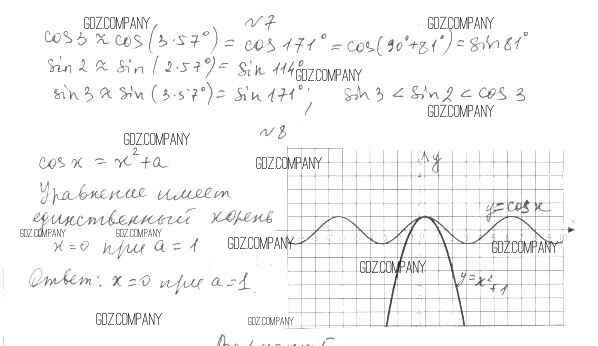 GDZ.COMPANY №7 GDZ.COMPANY
cos 3 ≈ cos(3·57°) = cos 171° = cos(90°+81°) = sin 81°
sin 2 ≈ sin(2·57°) = sin 114°
GDZ.COMPANY
sin 3 ≈ sin(3·57°) = sin 171°; sin 3 < sin 2 < cos 3
GDZ.COMPANY
№8
GDZ.COMPANY
cos x = x²+a GDZ.COMPANY y
Уравнение имеет
y=cos x
единственный корень
GDZ.COMPANY GDZ.COMPANY
x=0 при a=1 GDZ.COMPANY GDZ.COMPANY
GDZ.COMPANY
Ответ: x=0 при a=1 y=x²+1
GDZ.COMPANY GDZ.COMPANY